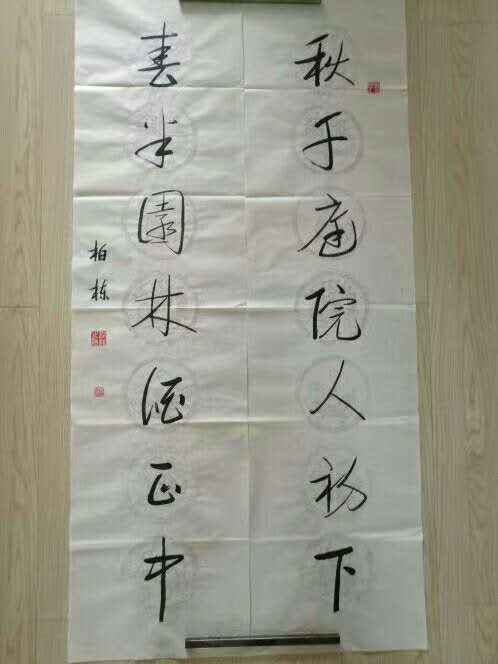 秋千庭院人初下
春半園林酒正中
柏栋